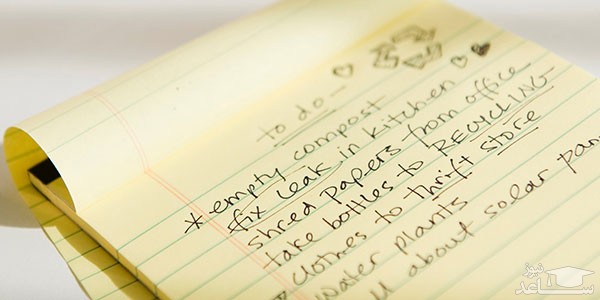 to do -
* empty compost
fix leak in kitchen
shred papers from office
take bottles to RECYCLING
clothes to thrift store
water plants
about solar pan
نیوز
ساعد